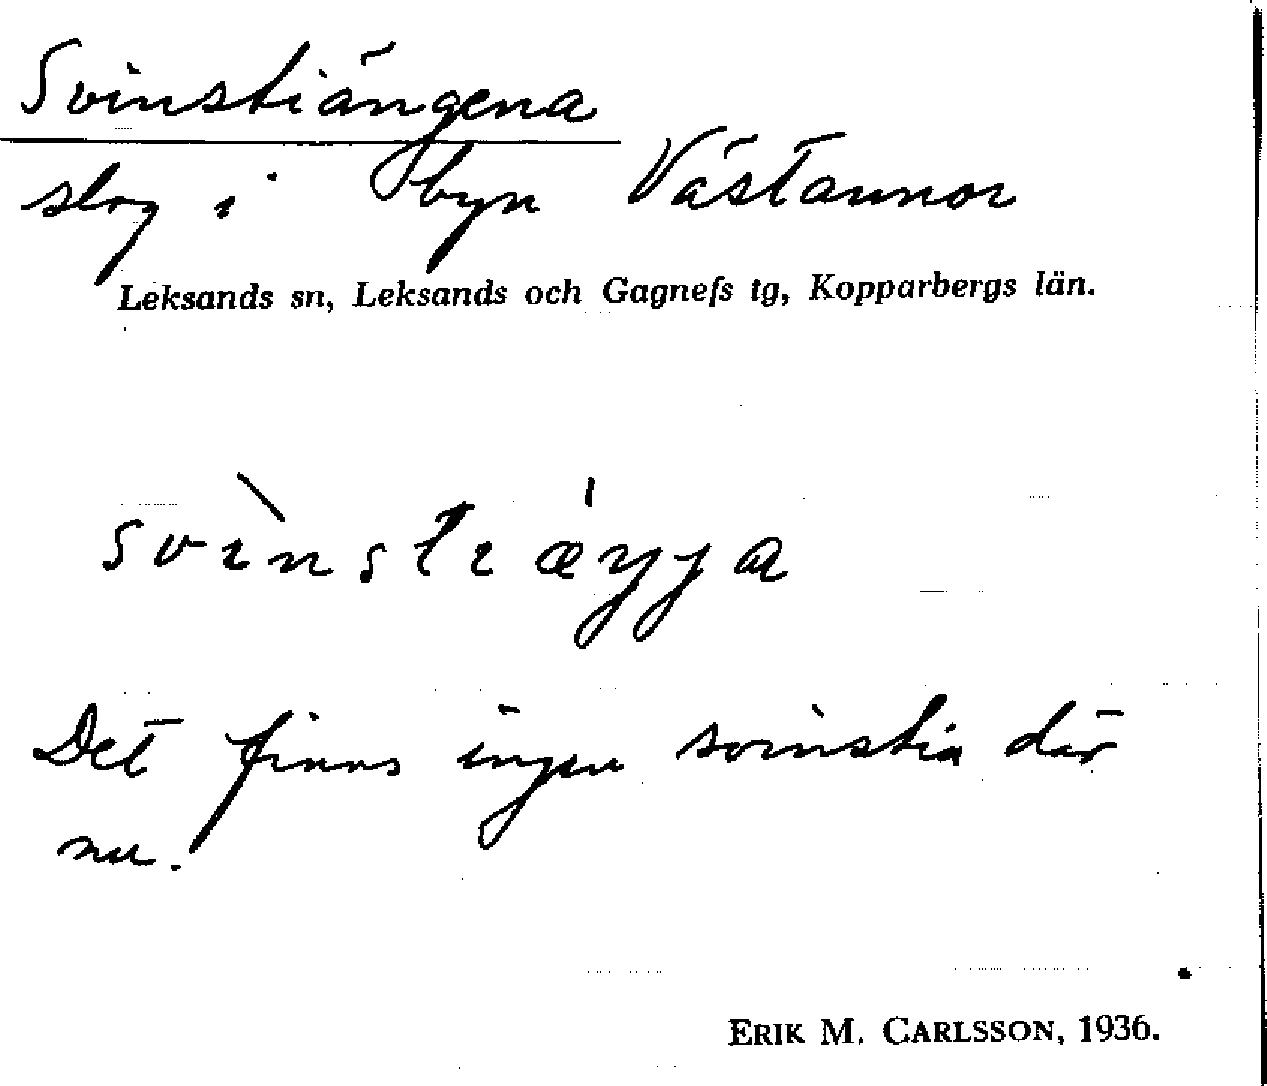 Svinstiängena
slog i byn Västannor
Leksands sn, Leksands och Gagnefs tg, Kopparbergs län.
svìnstıæ̍ŋŋa
Det finns ingen svinstia där
nu.
ERIK M. CARLSSON, 1936.